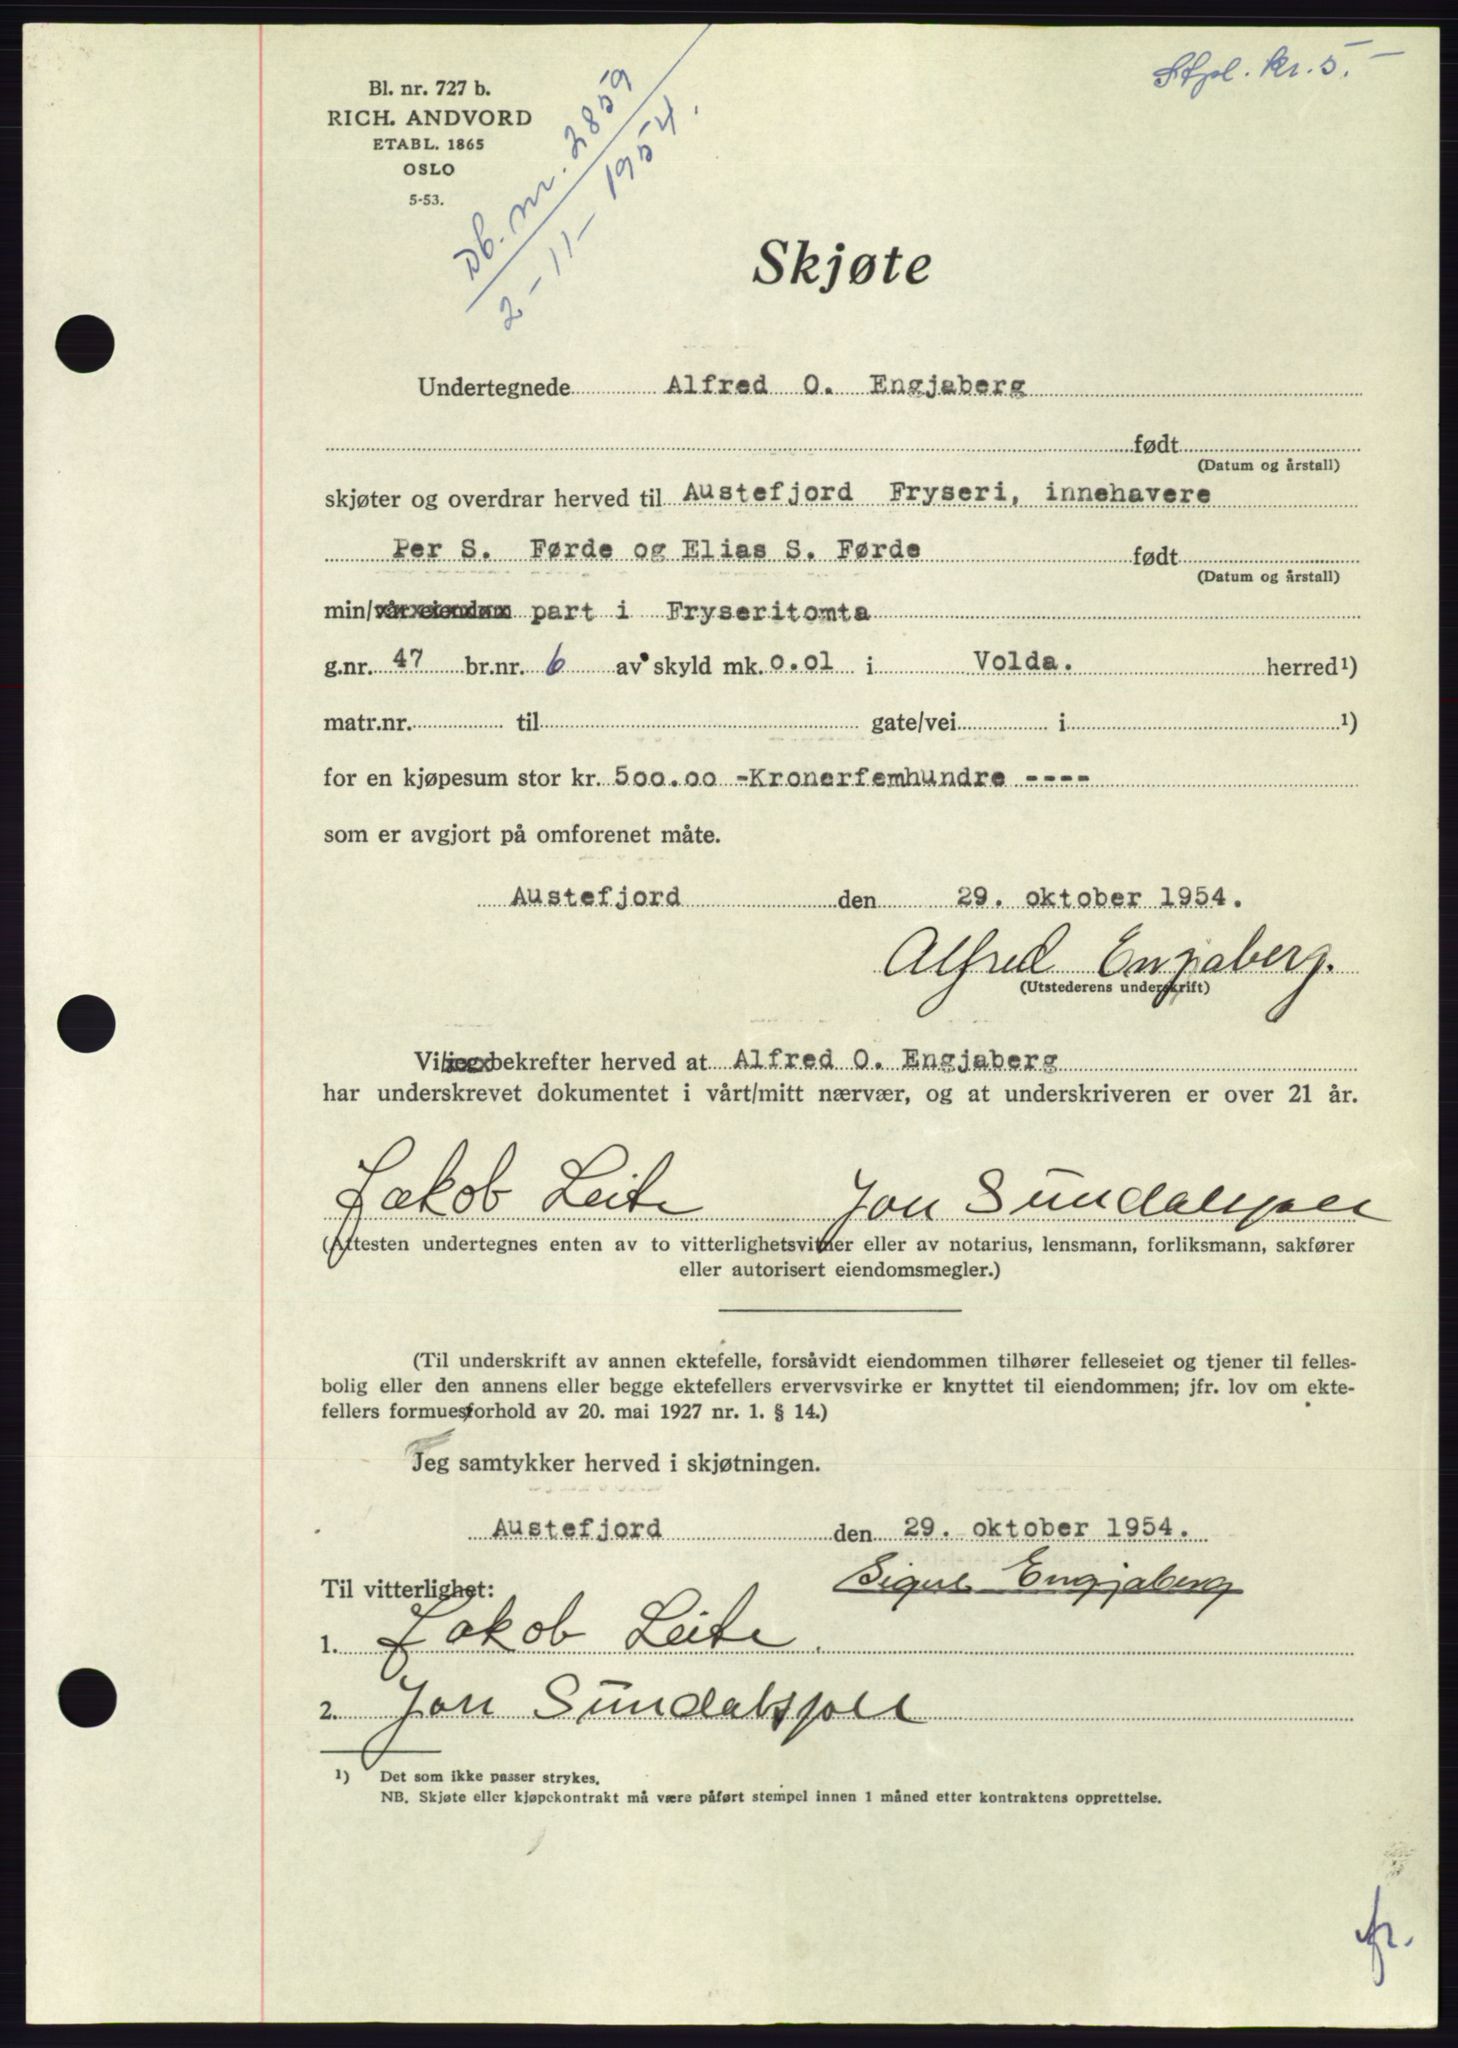 Stpl. kr. 5.–
Bl. nr. 727 b.
RICH. ANDVORD
ETABL. 1865
OSLO
5-53.
Db. nr. 2859
2-11-1954.
Skjøte
Undertegnede Alfred O. Engjaberg
født
(Datum og årstall)
skjøter og overdrar herved til Austefjord Fryseri, innehavere
Per S. Førde og Elias S. Førde født
(Datum og årstall)
min/vår eiendom part i Fryseritomta
g.nr. 47 br.nr. 6 av skyld mk. 0.01 i Volda. herred¹)
matr.nr. til gate/vei i ¹)
for en kjøpesum stor kr. 500.00 -Kronerfemhundre ----
som er avgjort på omforenet måte.
Austefjord den 29. oktober 1954.
Alfred Engjaberg.
(Utstederens underskrift)
Vi/jeg bekrefter herved at Alfred O. Engjaberg
har underskrevet dokumentet i vårt/mitt nærvær, og at underskriveren er over 21 år.
Jakob Leite Jon
(Attesten undertegnes enten av to vitterlighetsvitner eller av notarius, lensmann, forliksmann, sakfører
eller autorisert eiendomsmegler.)
(Til underskrift av annen ektefelle, forsåvidt eiendommen tilhører felleseiet og tjener til felles-
bolig eller den annens eller begge ektefellers ervervsvirke er knyttet til eiendommen; jfr. lov om ekte-
fellers formuesforhold av 20. mai 1927 nr. 1. § 14.)
Jeg samtykker herved i skjøtningen.
Austefjord den 29. oktober 1954.
Engjaberg
Til vitterlighet:
1. Jakob Leite.
2. Jon
¹) Det som ikke passer strykes.
NB. Skjøte eller kjøpekontrakt må være påført stempel innen 1 måned etter kontraktens opprettelse.
fr.